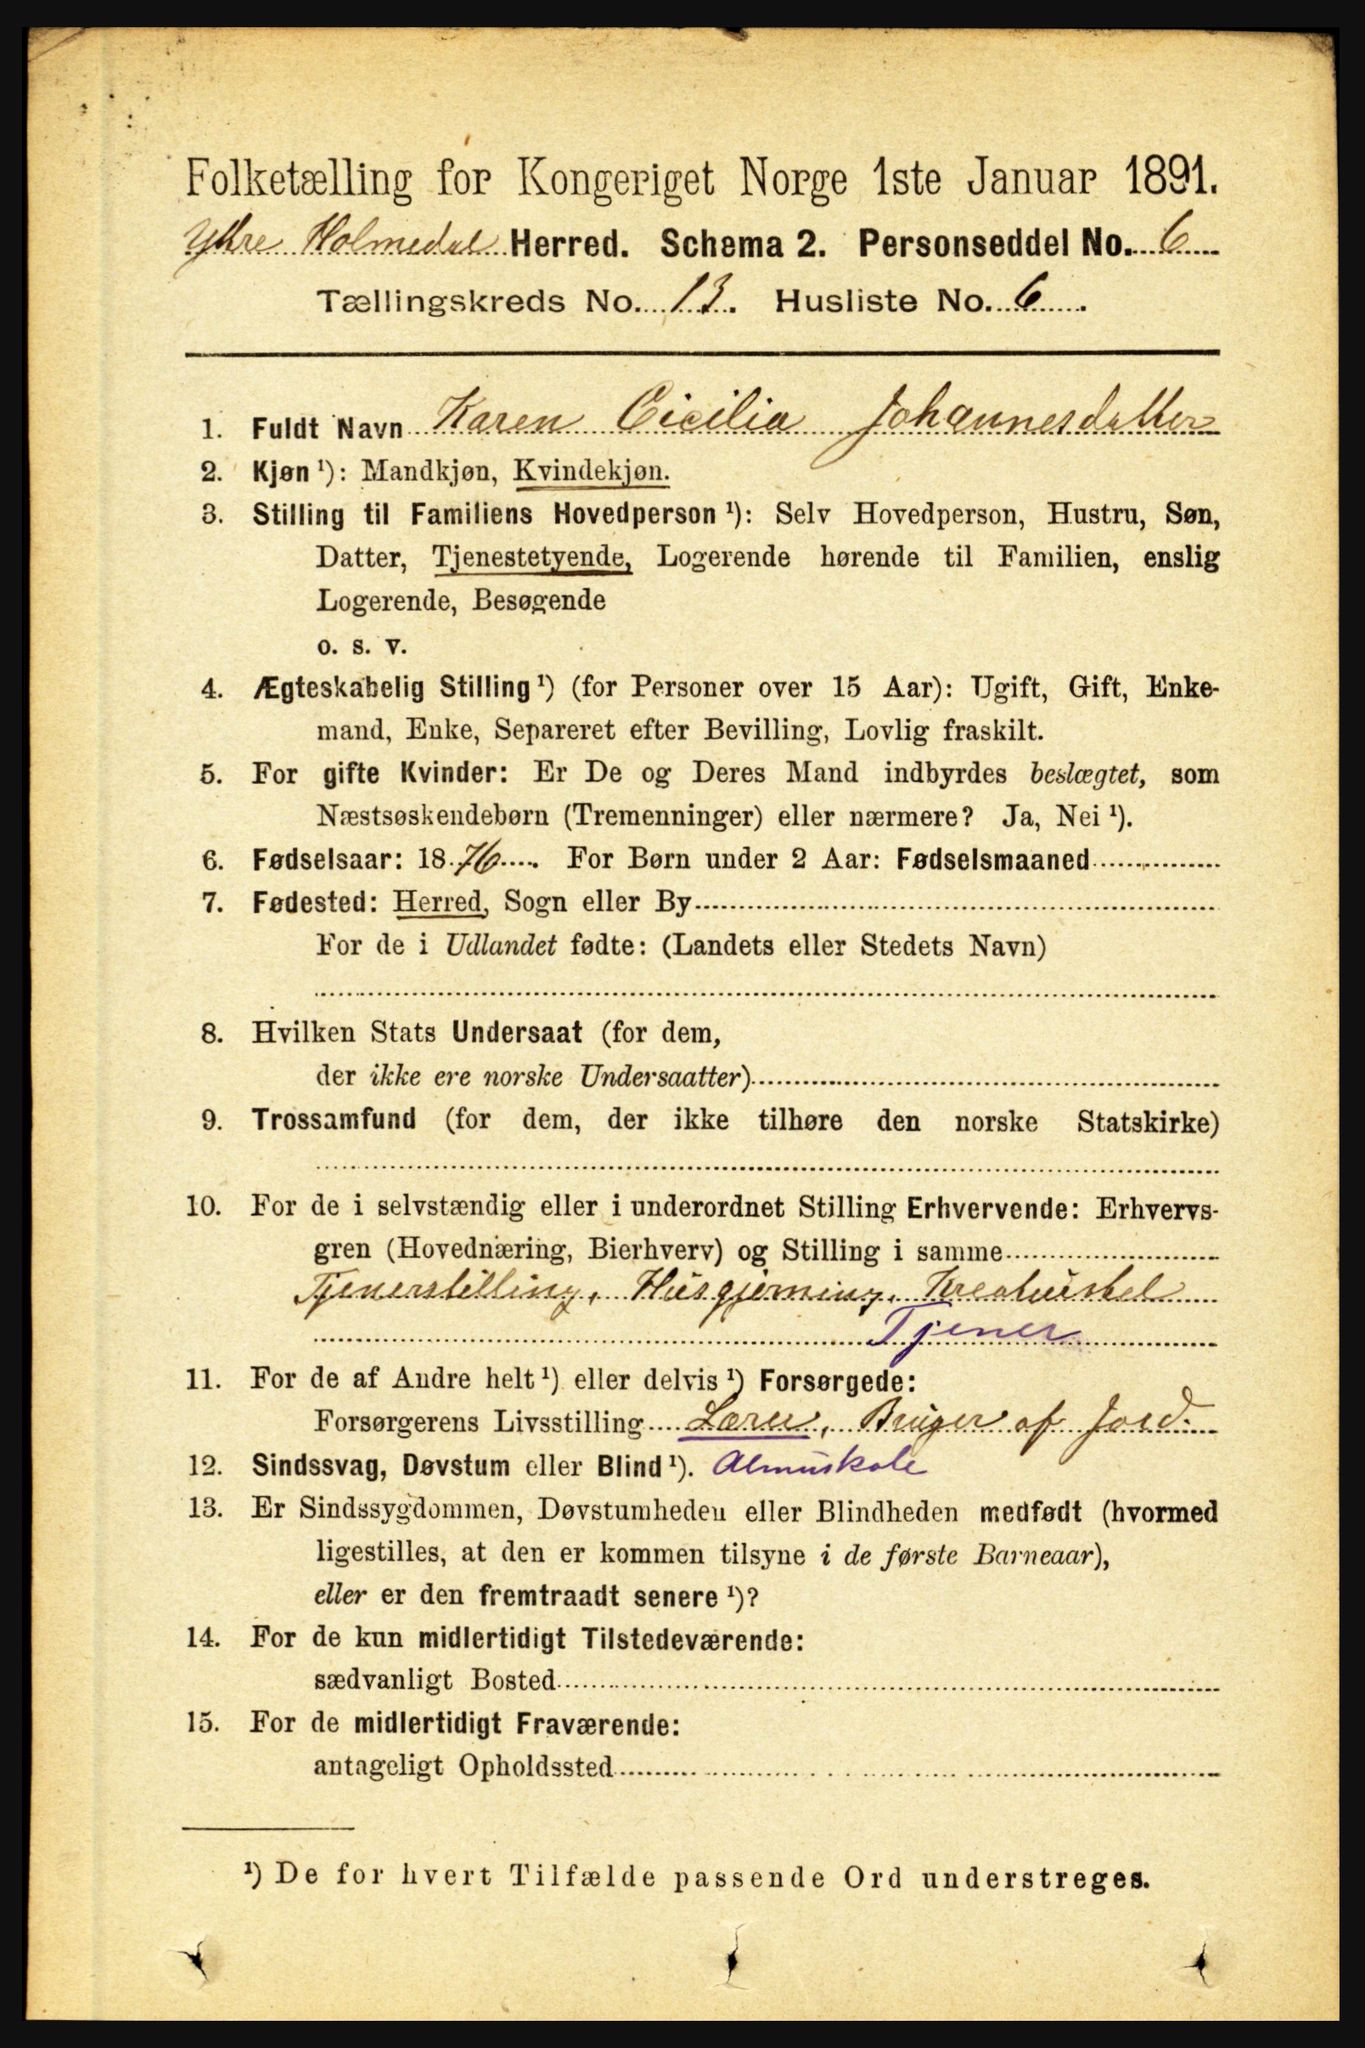 Folketælling for Kongeriget Norge 1ste Januar 1891.
Ytre Holmedal Herred. Schema 2. Personseddel No. 6
Tællingskreds No. 13. Husliste No. 6.
1. Fuldt Navn Karen Cicilia Johannesdatter
2. Kjøn ¹): Mandkjøn, Kvindekjøn.
3. Stilling til Familiens Hovedperson ¹): Selv Hovedperson, Hustru, Søn,
Datter, Tjenestetyende, Logerende hørende til Familien, enslig
Logerende, Besøgende
o. s. v.
4. Ægteskabelig Stilling ¹) (for Personer over 15 Aar): Ugift, Gift, Enke-
mand, Enke, Separeret efter Bevilling, Lovlig fraskilt.
5. For gifte Kvinder: Er De og Deres Mand indbyrdes beslægtet, som
Næstsøskendebørn (Tremenninger) eller nærmere? Ja, Nei ¹).
6. Fødselsaar: 1876. For Børn under 2 Aar: Fødselsmaaned
7. Fødested: Herred, Sogn eller By
For de i Udlandet fødte: (Landets eller Stedets Navn)
8. Hvilken Stats Undersaat (for dem,
der ikke ere norske Undersaatter)
9. Trossamfund (for dem, der ikke tilhøre den norske Statskirke)
10. For de i selvstændig eller i underordnet Stilling Erhvervende: Erhvervs-
gren (Hovednæring, Bierhverv) og Stilling i samme
Tjenerstilling, Husgjerning, Kreaturstel
Tjener
11. For de af Andre helt ¹) eller delvis ¹) Forsørgede:
Forsørgerens Livsstilling Lærer, Bruger af Jord.
12. Sindssvag, Døvstum eller Blind ¹). Almuskole
13. Er Sindssygdommen, Døvstumheden eller Blindheden medfødt (hvormed
ligestilles, at den er kommen tilsyne i de første Barneaar),
eller er den fremtraadt senere ¹)?
14. For de kun midlertidigt Tilstedeværende:
sædvanligt Bosted
15. For de midlertidigt Fraværende:
antageligt Opholdssted
¹) De for hvert Tilfælde passende Ord understreges.